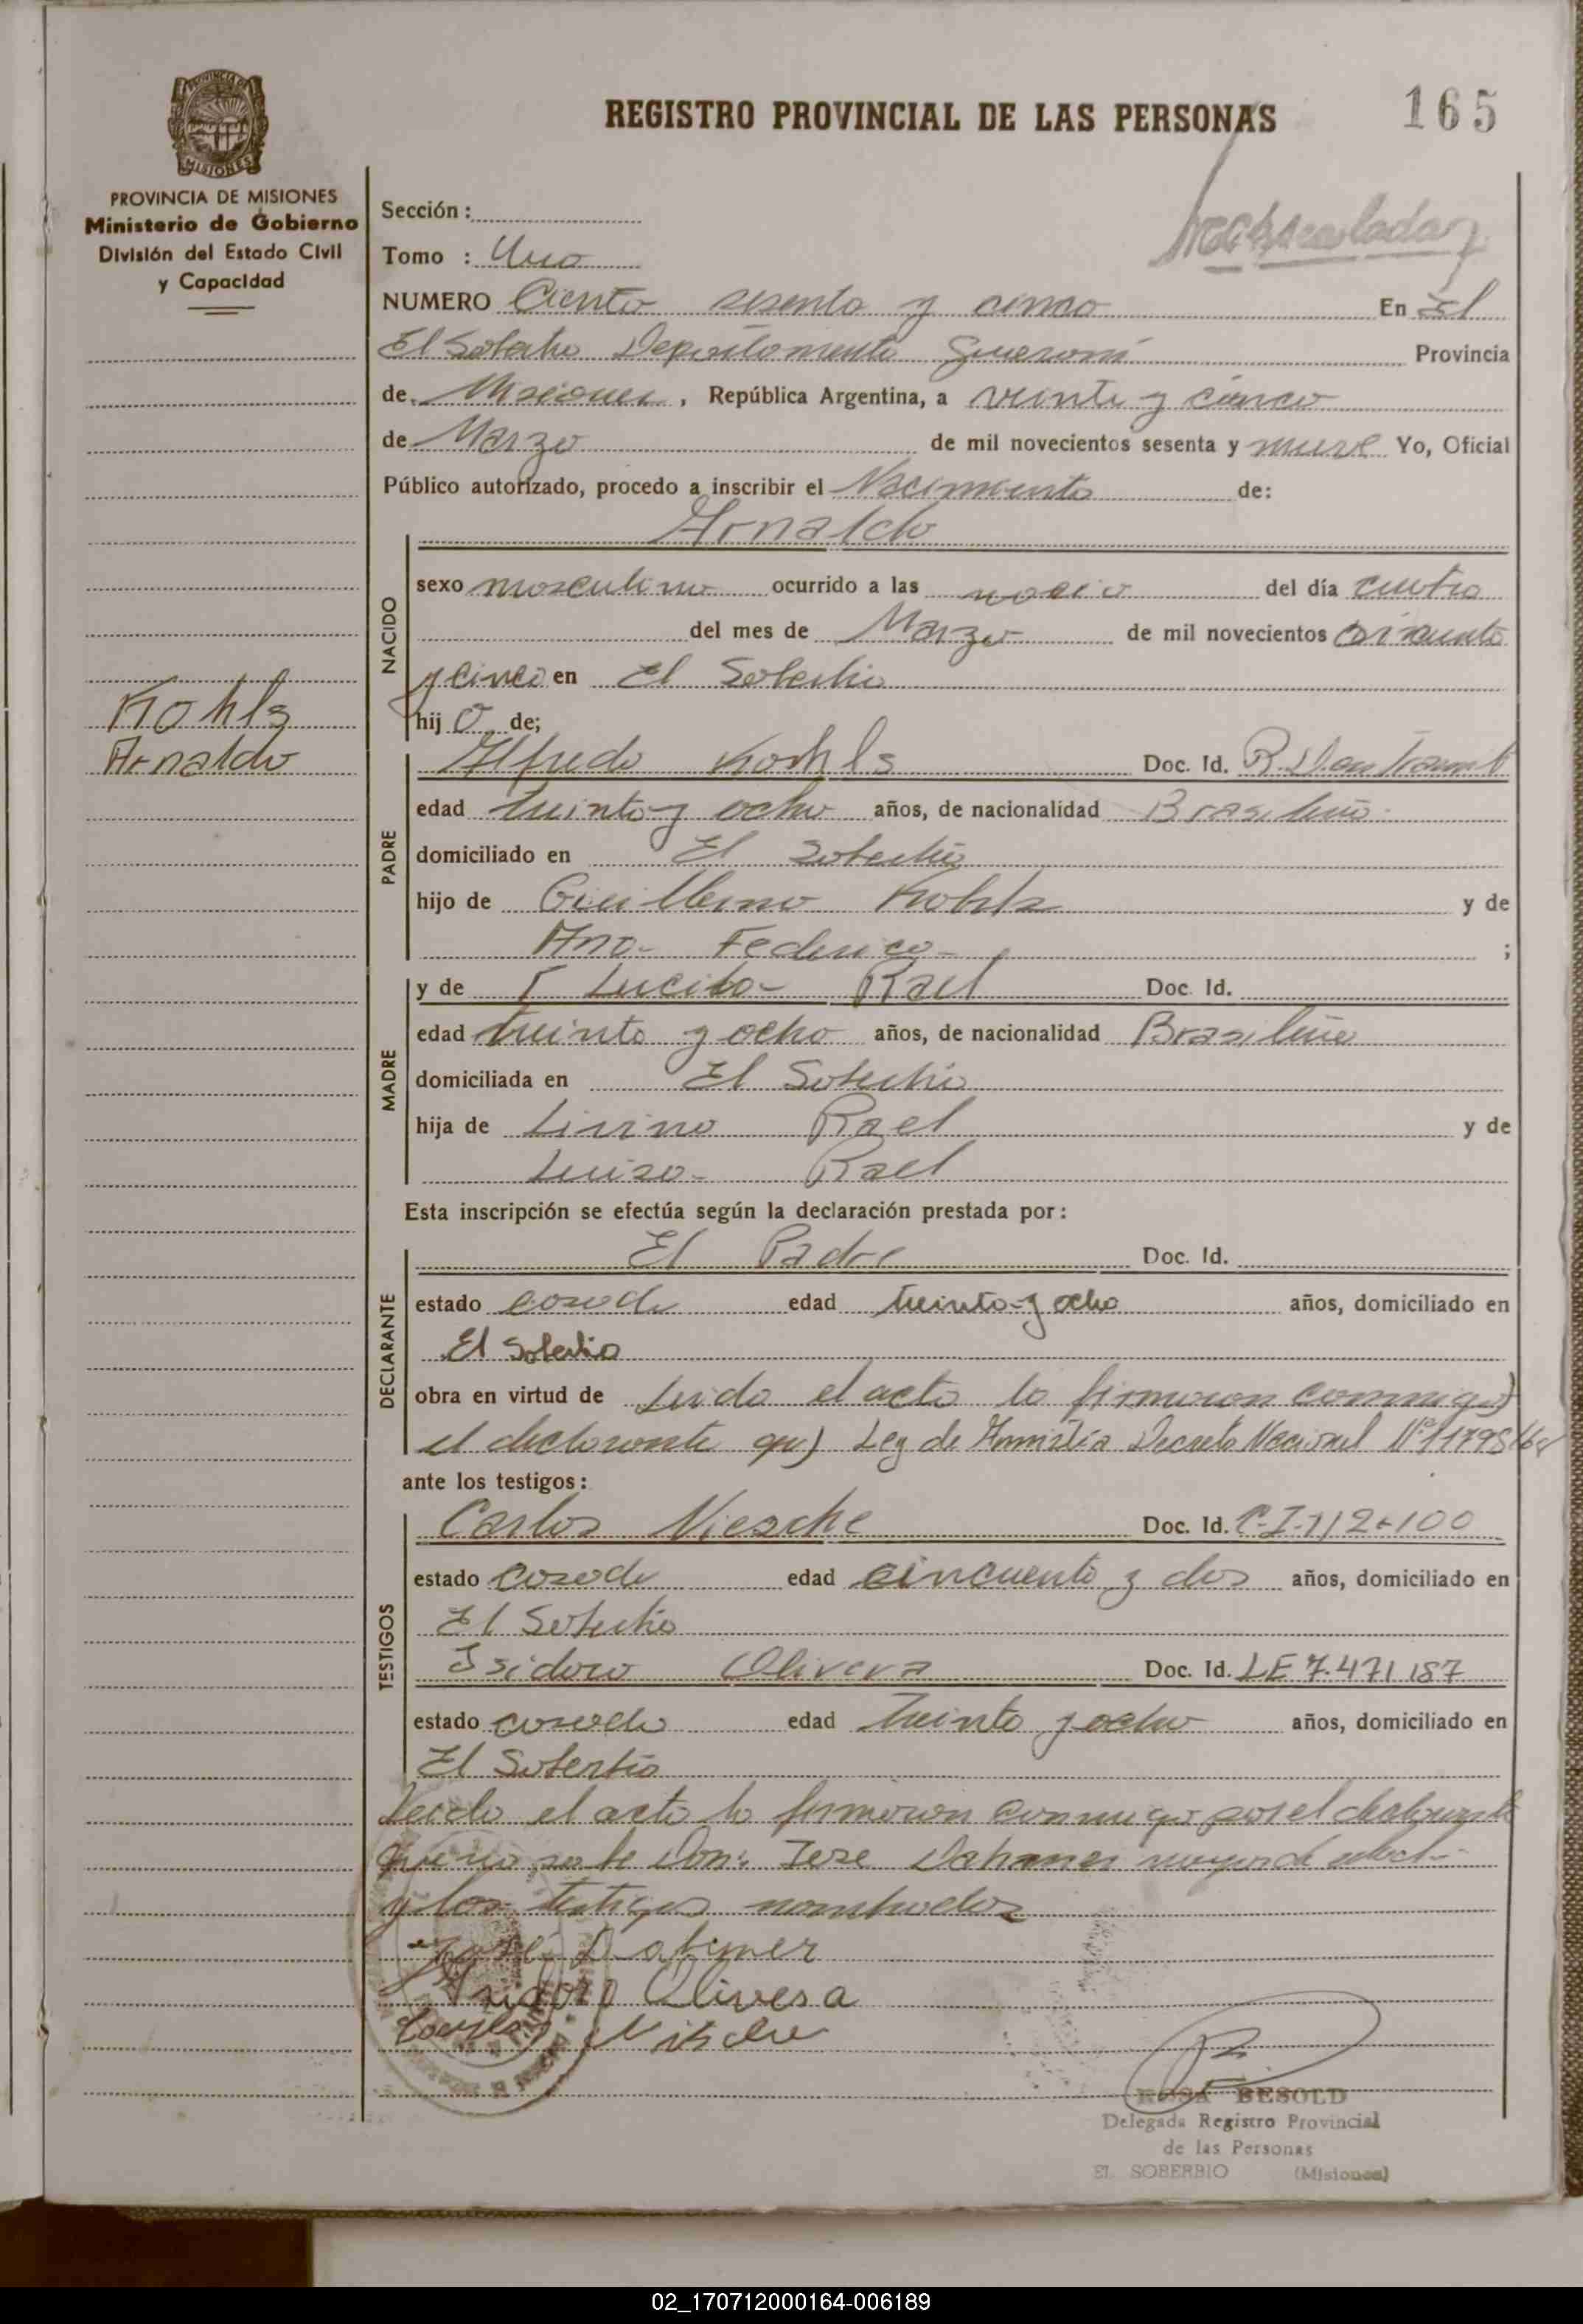 REGISTRO PROVINCIAL DE LAS PERSONAS
165
PROVINCIA DE MISIONES
Ministerio de Gobierno
División del Estado Civil
y Capacidad
Sección :
Tomo : Uno
NUMERO Ciento sesenta y cinco En El
El Soberbio Departamento Guaraní Provincia
de Misiones, República Argentina, a veinte y cinco
de Marzo de mil novecientos sesenta y nueve Yo, Oficial
Público autorizado, procedo a inscribir el Nacimiento de:
Arnaldo
NACIDO
sexo masculino ocurrido a las del día cuatro
del mes de Marzo de mil novecientos cincuenta
y cinco en El Soberbio
Kohls
Arnaldo
hijo de;
PADRE
Alfredo Kohls Doc. Id.
edad treinta y ocho años, de nacionalidad Brasileño
domiciliado en El Soberbio
hijo de Guillermo Kohls y de
Ana Federico ;
MADRE
y de Rael Doc. Id.
edad treinta y ocho años, de nacionalidad Brasileña
domiciliada en El Soberbio
hija de Rael y de
Luisa Rael
Esta inscripción se efectúa según la declaración prestada por :
DECLARANTE
El Padre Doc. Id.
estado casado edad treinta y ocho años, domiciliado en
El Soberbio
obra en virtud de Leida el acta la firmaron conmigo
el declarante Ley de Amnistia Decreto Nacional
ante los testigos :
TESTIGOS
Carlos Niesche Doc. Id.
estado casado edad cincuenta y dos años, domiciliado en
El Soberbio
Isidoro Olivera Doc. Id. LE 7.471.187
estado casado edad treinta y ocho años, domiciliado en
El Soberbio
Leida el acta la firmaron conmigo por el declarante
que no sabe Don: Jose mayor de edad
y los testigos nombrados
José
Isidoro Olivera
Carlos
ROSA BESOLD
Delegada Registro Provincial
de las Personas
EL SOBERBIO (Misiones)
02_170712000164-006189